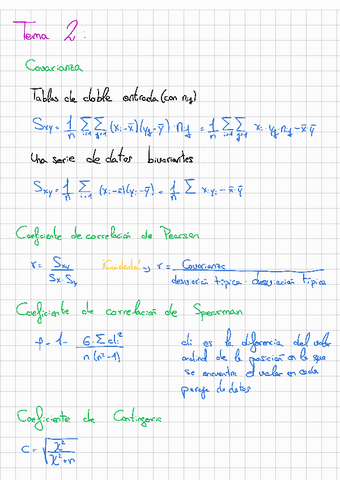 Tema 2:
Covarianza
Tablas de doble entrada (con nij)
Sxy = 1/n Σi=1 Σj=1 (xi-x̄)(yj-ȳ)·nij = 1/n Σi=1 Σj=1 xi·yj·nij - x̄·ȳ
Una serie de datos bivariantes
Sxy = 1/n Σi=1 (xi-x̄)(yi-ȳ) = 1/n Σ xi·yi - x̄·ȳ
Coeficiente de correlación de Pearson
r = Sxy / Sx·Sy ¡Cuidado! r = Covarianza / desviación típica · desviación típica
Coeficiente de correlación de Spearman
ρ = 1 - 6·Σdi² / n(n²-1)
di es la diferencia del valor
ordinal de la posición en la que
se encuentre el valor en cada
pareja de datos
Coeficiente de Contingencia
C = √(χ² / χ²+n)